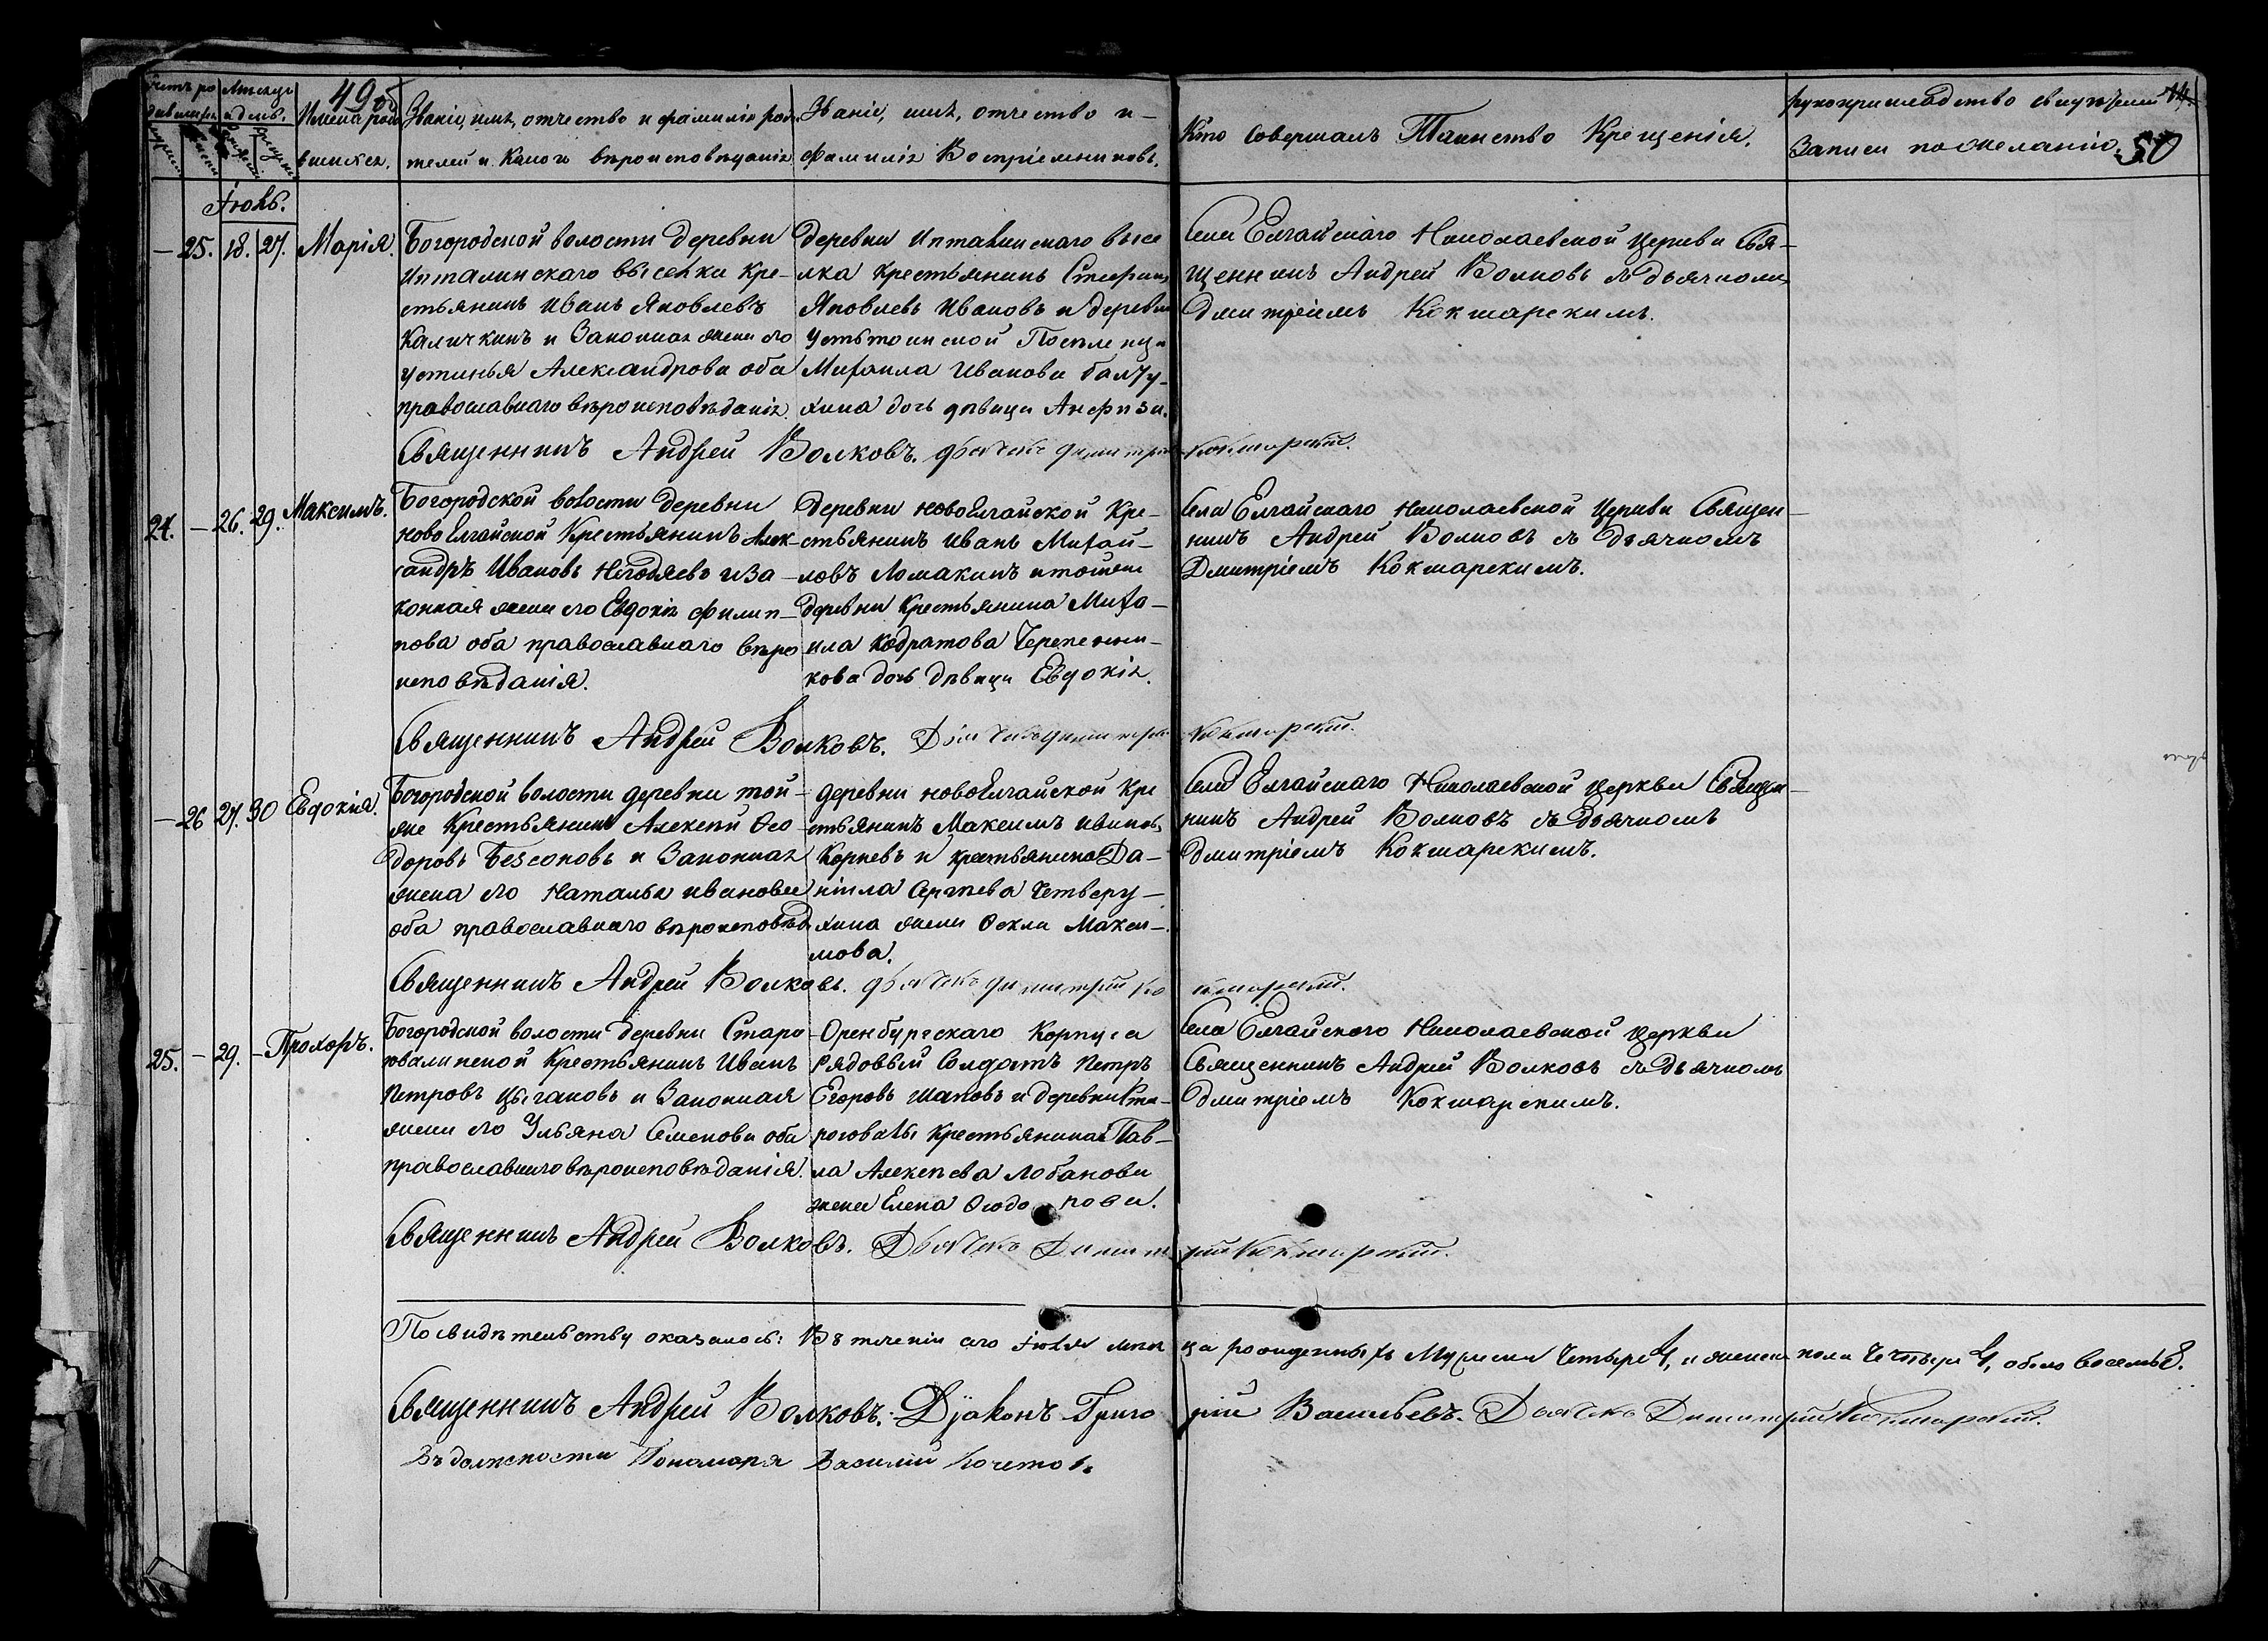 49 об
14.
50
Счетъ ро
дившихся
Мѣсяцъ
и день.
Имена родив
шихся.
Званіе, имя, отчество и фамилія роди
телей и какого вѣроисповѣданія
Званіе, имя, отчество и
фамилія Воспріемниковъ.
Кто совершалъ Таинство Крещенія.
Рукоприкладство свидѣтелей
Записи по желанію.
Іюль.
— 25. 18. 27. Марія.
Богородской волости деревни
Ипталинскаго высѣлка кре-
стьянинъ Иванъ Яковлевъ
Каличкинъ и Законная жена его
Устинья Александрова оба
православнаго вѣроисповѣданія.
деревни Ипталинскаго высе
лка крестьянинъ Стефанъ
Яковлевъ Ивановъ и деревни
Устьтоинской Поселенца
Михаила Иванова Балду-
хина дочь дѣвица Анфиза.
Села Елгайскаго Николаевской Церкви Свя-
щенникъ Андрей Волковъ съ дьячкомъ
Дмитріемъ Кокшарскимъ.
Священникъ Андрей Волковъ. Дьячекъ Димитрій Кокшарскій.
24. — 26. 29. Максимъ.
Богородской волости деревни
новоЕлгайской Крестьянинъ Алек-
сандръ Ивановъ Негодяевъ и За-
конная жена его Евдокія Филип-
пова оба православнаго вѣро
исповѣданія.
Деревни новоЕлгайской Кре-
стьянинъ Иванъ Михай-
ловъ Ломакинъ и тойже
деревни Крестьянина Миха-
ила Кодратова Черепенни-
кова дочь дѣвица Евдокія.
Села Елгайскаго Николаевской Церкви Священ-
никъ Андрей Волковъ съ Дьячкомъ
Дмитріемъ Кокшарскимъ.
Священникъ Андрей Волковъ. Дьячекъ Димитрій Кокшарскій.
— 26 27. 30 Евдокія.
Богородской волости деревни той-
же Крестьянинъ Алексѣй Ѳео
доровъ Безсоновъ и Законная
жена его Наталья Иванова
оба православнаго вѣроисповѣд
деревни новоЕлгайской Кре
стьянинъ Максимъ Ивановъ
Корневъ и крестьянина Да-
нійла Сергѣева Четверу-
хина жена Ѳекла Макси-
мова.
Села Елгайскаго Николаевской Церкви Священ-
никъ Андрей Волковъ съ Дьячкомъ
Дмитріемъ Кокшарскимъ.
Священникъ Андрей Волковъ. Дьячекъ Димитрій Кокшарскій.
25. — 29. — Прохоръ.
Богородской волости деревни Старо
ювалинской Крестьянинъ Иванъ
Петровъ Цыгановъ и Законная
жена его Ульяна Семенова оба
православнаго вѣроисповѣданія.
Оренбургскаго Корпуса
рядовый Солдатъ Петръ
Егоровъ Шаповъ и деревни Ста-
роювалы Крестьянина Пав-
ла Алексѣева Лобанова
жена Елена Ѳеодо рова.
Села Елгайского Николаевской церкви
Священникъ Андрей Волковъ съ Дьячкомъ
Дмитріемъ Кокшарскимъ.
Священникъ Андрей Волковъ. Дьячекъ Димитрій Кокшарскій.
По свидѣтельству оказалось: Въ теченіи сего Іюля мѣсяца рожденныхъ Мужеска Четыре 4, и женска пола Четыре 4, обоего восемь 8.
Священникъ Андрей Волковъ. Дьяконъ Григорій Васильевъ. Дьячекъ Димитрій Кокшарскій.
Въ должности Пономаря Василій Кочетов.